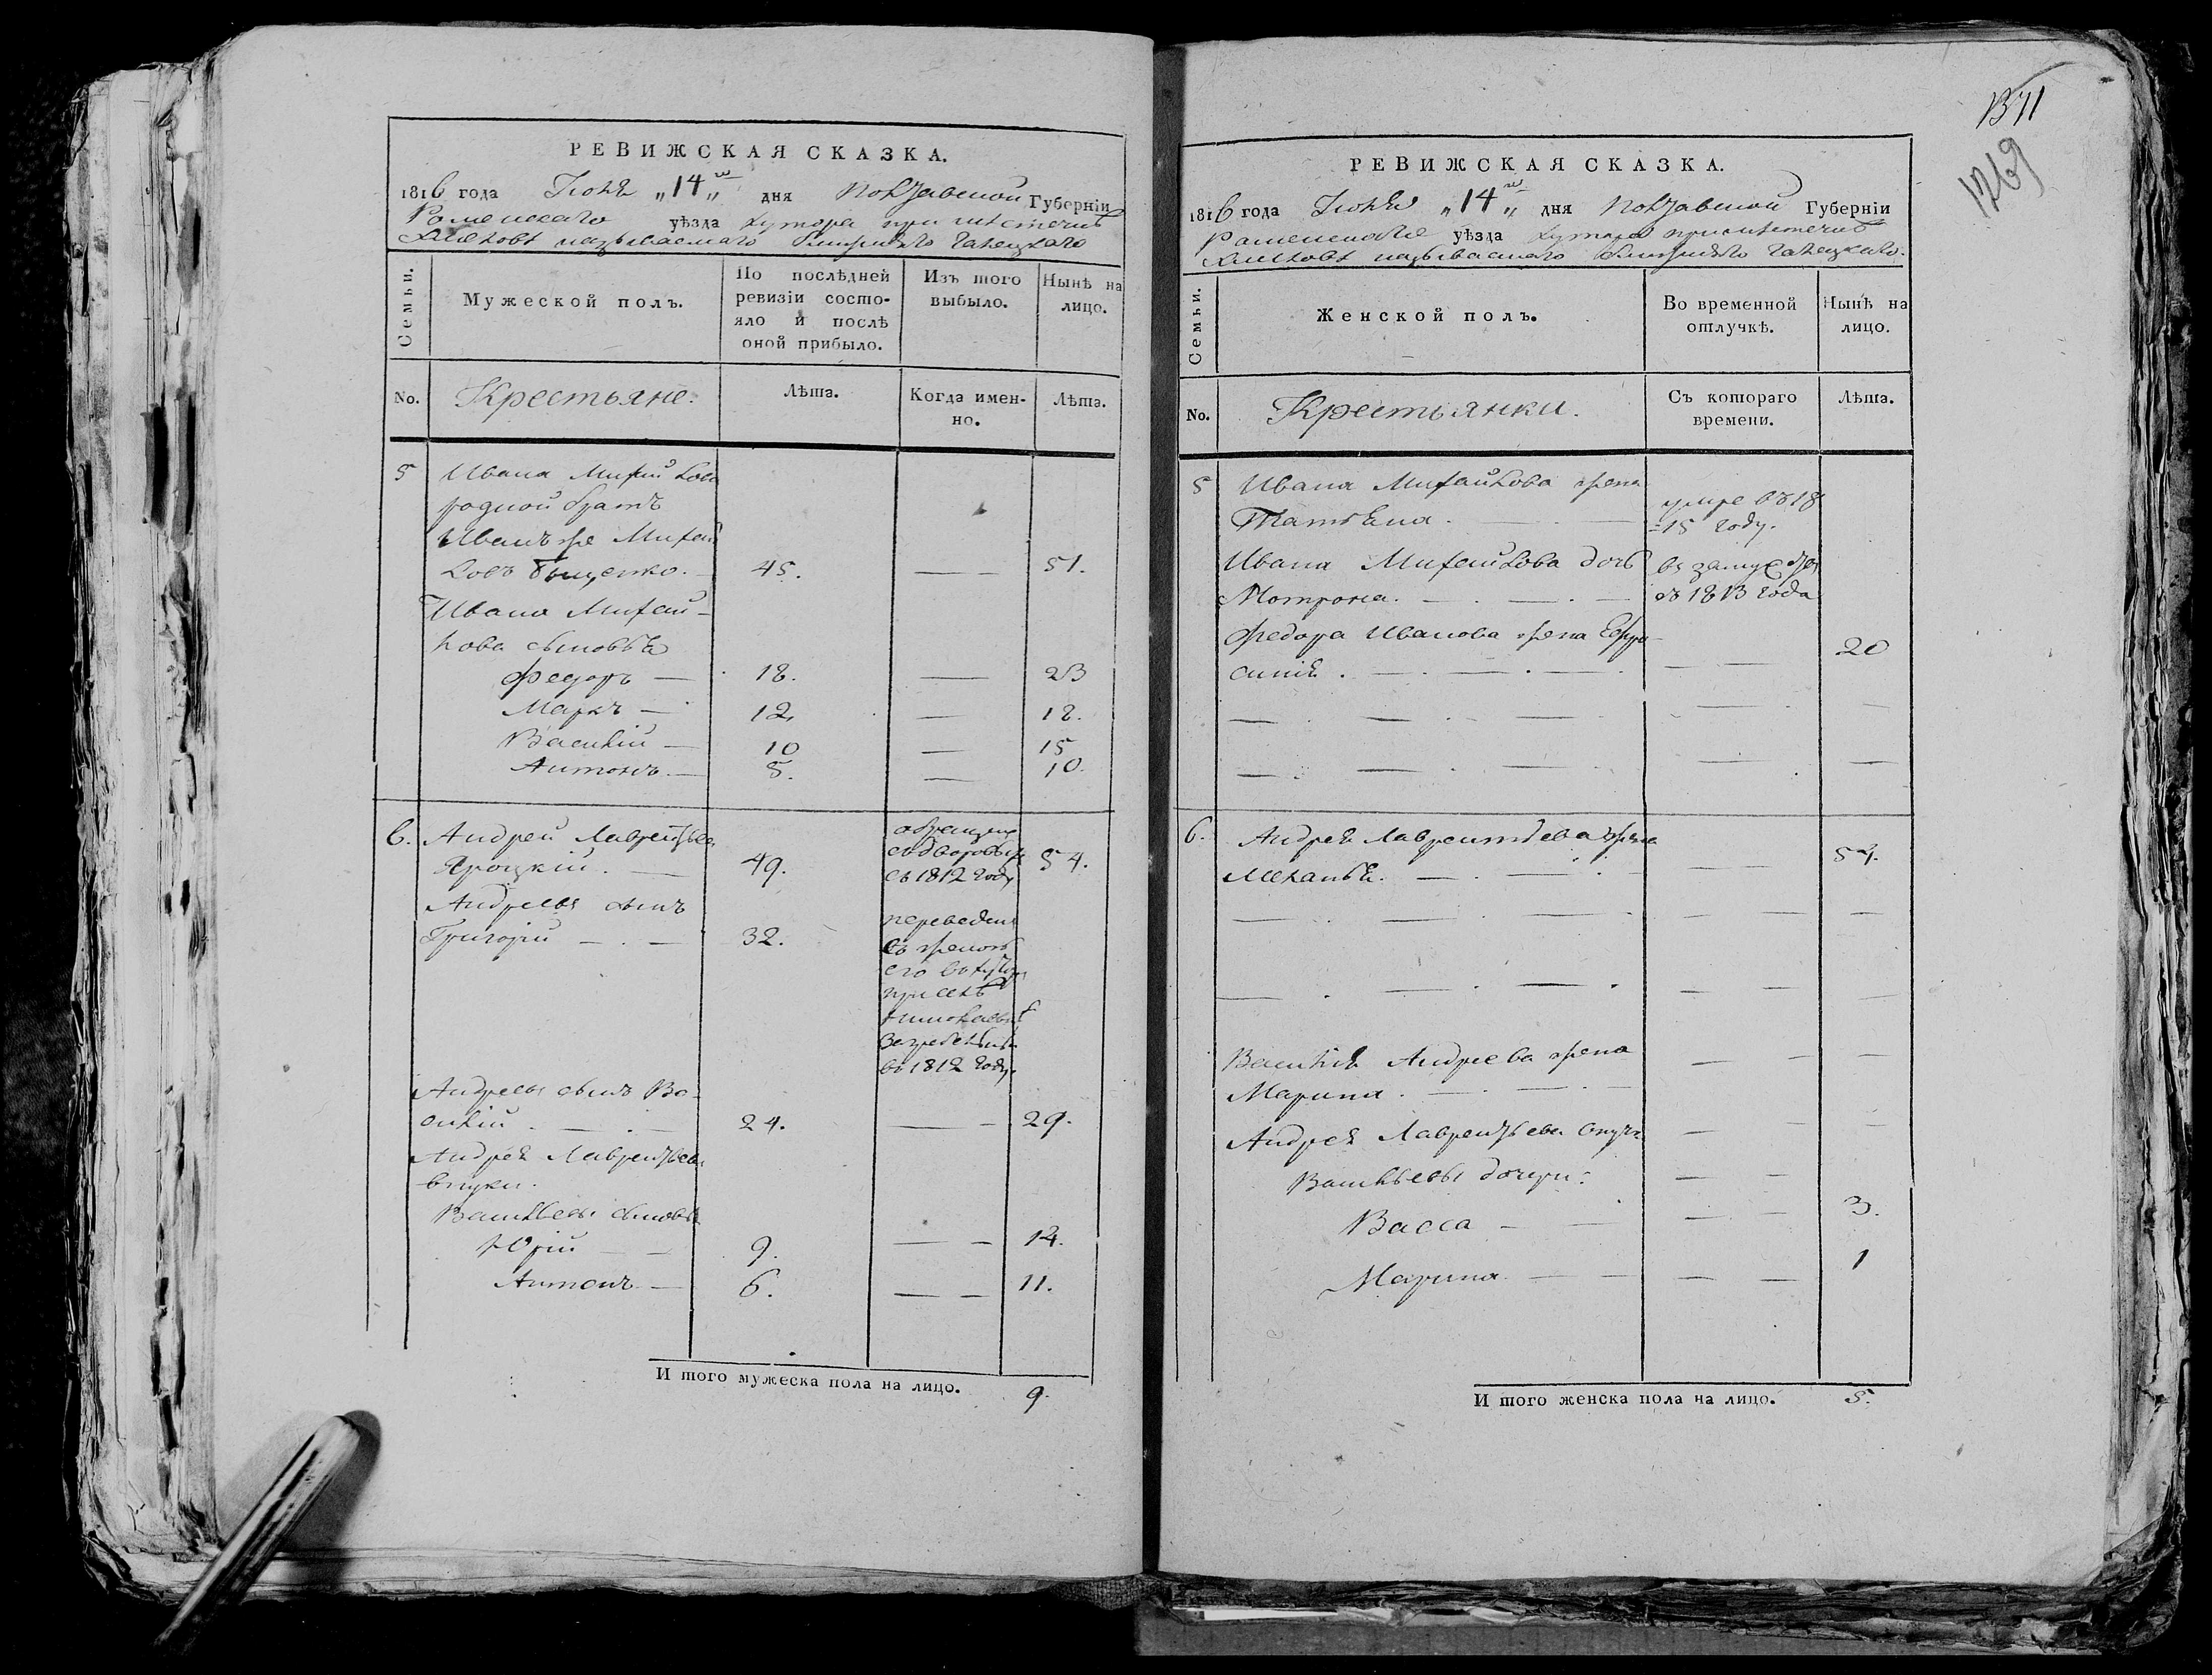 РЕВИЖСКАЯ СКАЗКА.
1816 года Іюля „14го„ дня Полтавской Губерніи
Роменскаго уѣзда хутора при мѣстечкѣ
называемаго
Семьи.
Мужеской полъ.
По послѣдней ревизіи состояло и послѣ оной прибыло.
Изъ того выбыло.
Нынѣ на лицо.
No.
Крестьяне.
Лѣта.
Когда именно.
Лѣта.
5 Ивана Михайлова
родной братъ
Иванъ же Михай
ловъ 45. — 51.
Ивана Михай-
лова сыновья
Федоръ — 18. — 23
Марко — 12. — 18.
Василій — 10 — 15
Антонъ — 5. — 10.
6. Андрей Лаврентьевъ
Яроцкій. — 49. 54.
въ 1812 году
Андреевъ сынъ
Григорій — . — 32.
переведенъ
съ женою
его въ хуторъ
при селѣ
въ 1812 году.
Андреевъ сынъ Ва-
силій . — . — 24. — — 29.
Андрея Лаврентьева
внуки.
Васильевы сыновья
Юрій — — 9. — — 14.
Антонъ — 6. — — 11.
И того мужеска пола на лицо. 9.
1371
1269
РЕВИЖСКАЯ СКАЗКА.
1816 года Іюля „14го„ дня Полтавской Губерніи
Роменскаго уѣзда хутора при мѣстечкѣ
называемаго
Семьи.
Женской полъ.
Во временной отлучкѣ.
Нынѣ на лицо.
No.
Крестьянки.
Съ котораго времени.
Лѣта.
5 Ивана Михайлова жена
Татьяна . — — умре въ 18
=15 году.
Ивана Михайлова дочь
Мотрона. — . — . — въ замужстве
съ 1813 года
Федора Иванова жена Ефро-
синія . — . — . — . — — 20
6. Андрея Лаврентьева жена
Меланья. — . — . — — 54.
Василія Андреева жена — — —
Марина . — . — . —
Андрея Лаврентьева внуки — — —
Васильевы дочери: — —
Васса — — — — 3.
Марина — — — — 1
И того женска пола на лицо. 5.